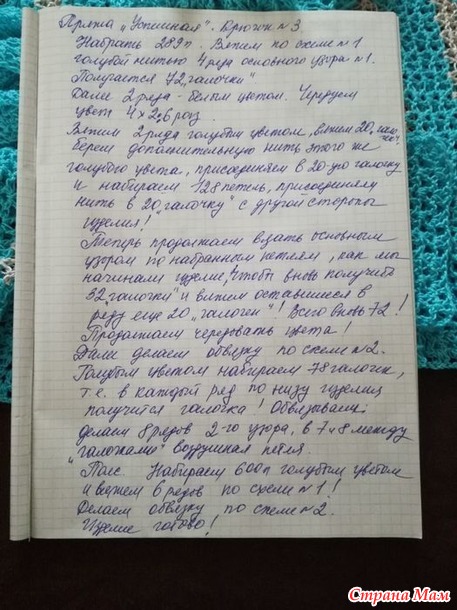 Пряжа „Успешная". Крючок №3.
Набрать 289п. Вяжем по схеме №1
голубой нитью 4 ряда основного узора №1.
Получается 72 „галочки"
Далее 2 ряда - белым цветом. Чередуем
цвета 4×2, 6 раз.
Вяжем 2 ряда голубым цветом, вяжем 20 „галочек",
берем дополнительную нить этого же
голубого цвета, присоединяем в 20-ую галочку
и набираем 128 петель, присоединяем
нить в 20 „галочку" с другой стороны
изделия!
Теперь продолжаем вязать основным
узором по набранным петлям, как мы
начинали изделие, чтобы вновь получить
32 „галочки" и вяжем оставшиеся в
ряду еще 20 „галочек"! Всего вновь 72!
Продолжаем чередовать цвета!
Далее делаем обвязку по схеме №2.
Голубым цветом набираем 78 галочек,
т.е. в каждый ряд по низу изделия
получится галочка! Обвязываем:
делаем 8 рядов 2-го узора, в 7 и 8 между
„галочками" воздушная петля.
Пояс. Набираем 600п голубым цветом
и вяжем 6 рядов по схеме №1!
Делаем обвязку по схеме №2.
Изделие готово!
Страна Мам